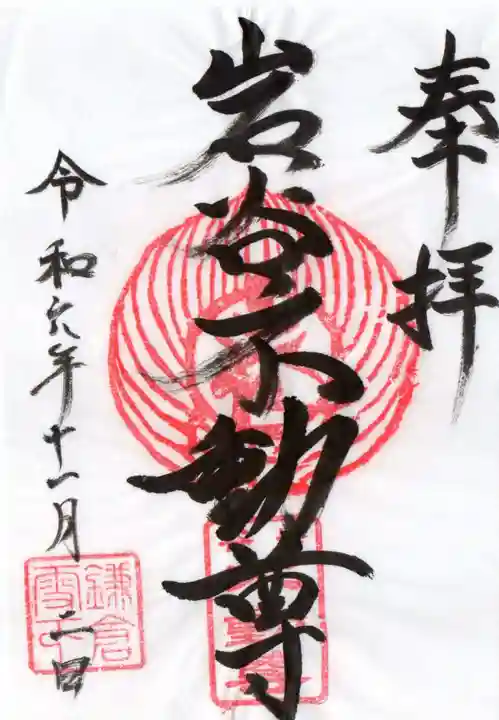 奉拝
岩谷不動尊
令和六年十一月二日
鎌倉
雪下